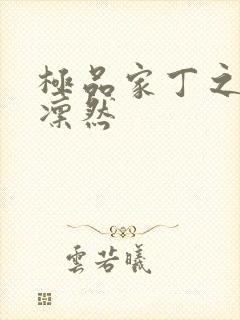 極品家丁之
凜然
雲若曦